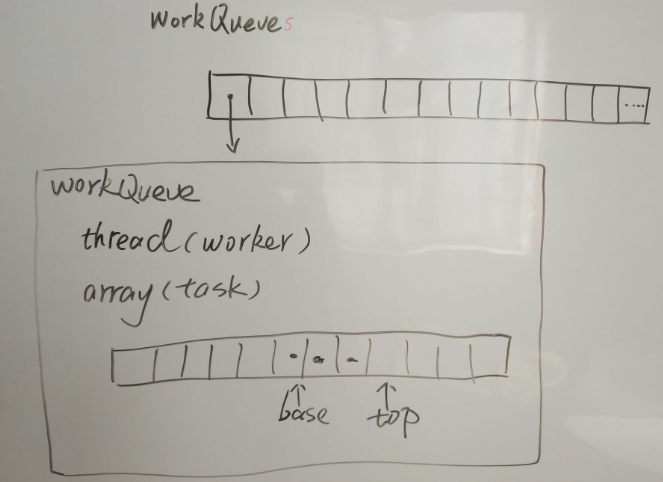 workQueues
....
workQueue
thread(worker)
array(task)
base
top